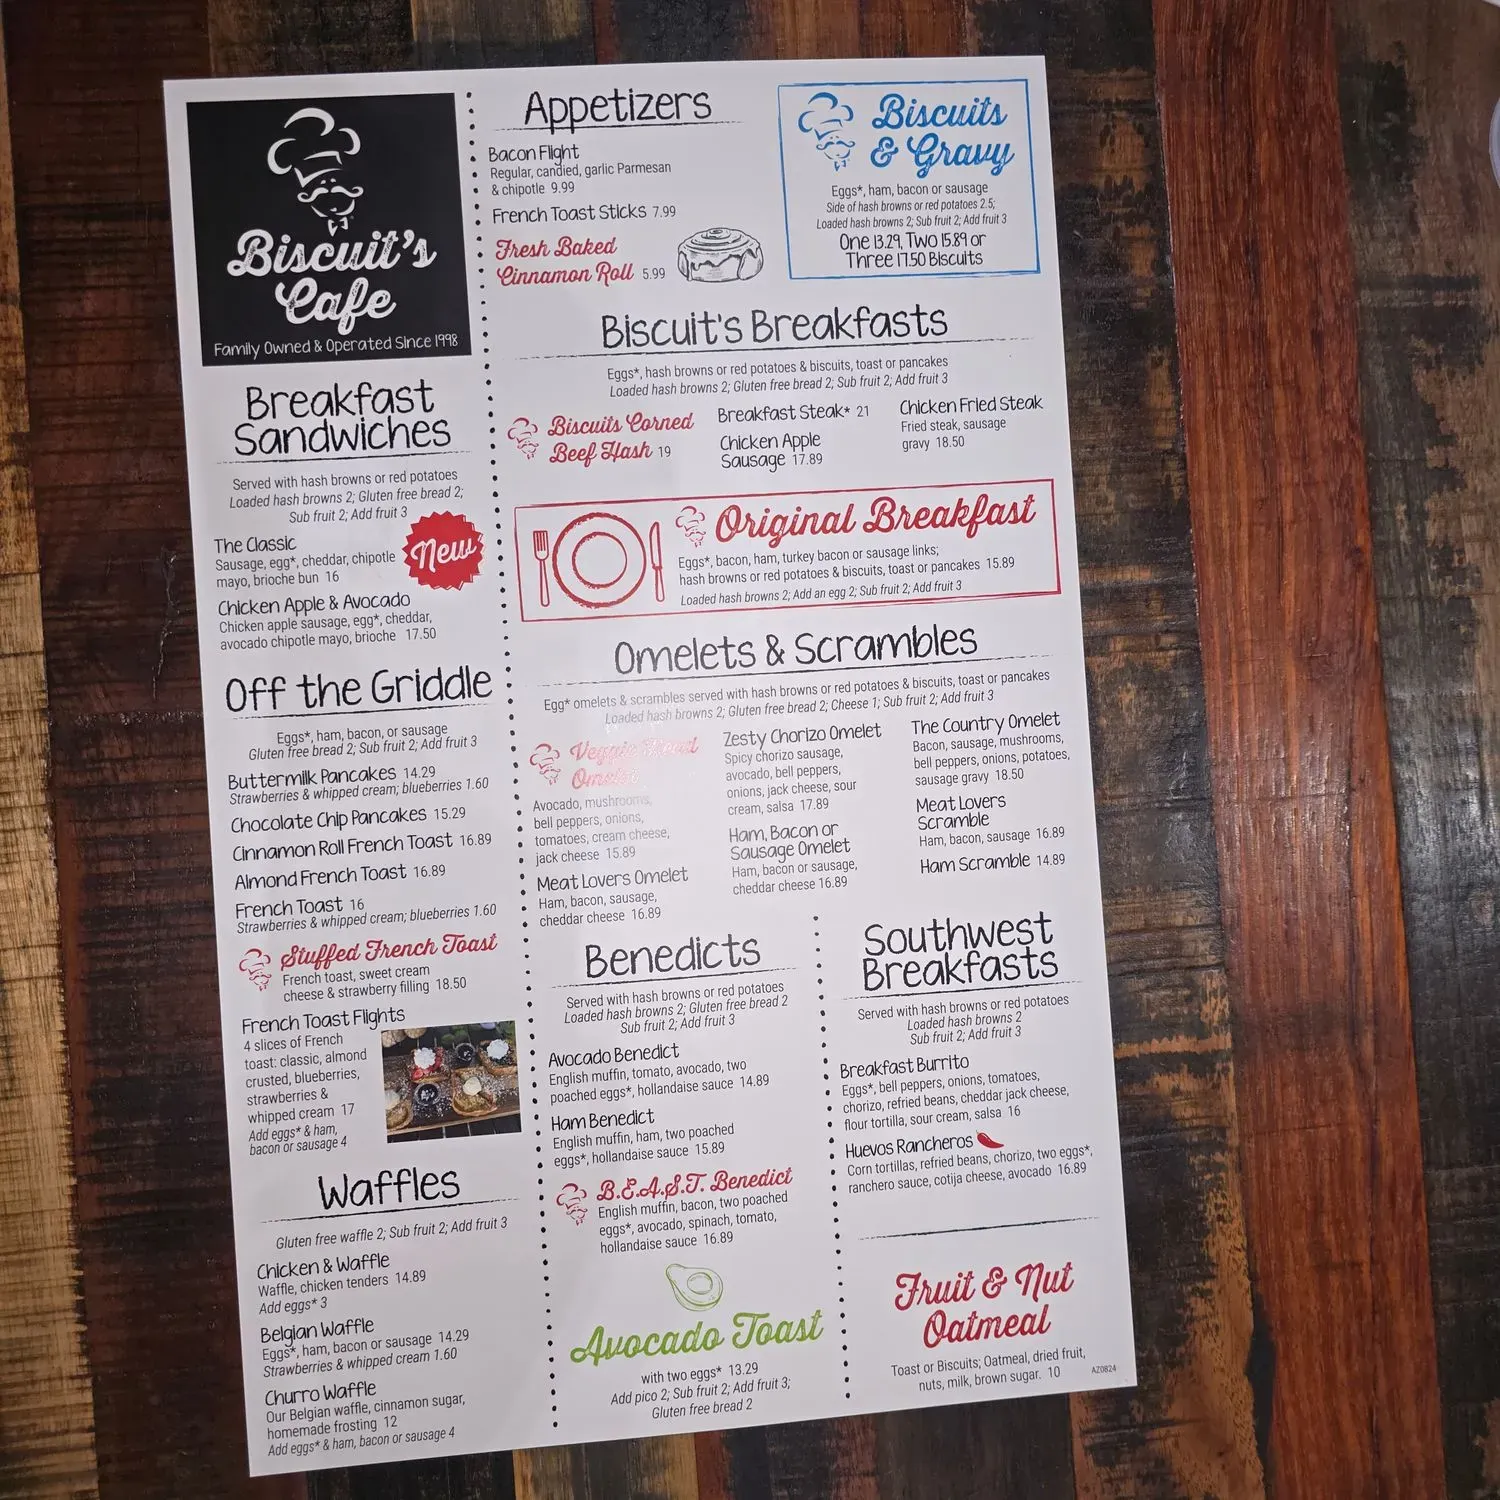 Biscuit's
Cafe
Family Owned & Operated Since 1998
Breakfast
Sandwiches
Served with hash browns or red potatoes
Loaded hash browns 2; Gluten free bread 2;
Sub fruit 2; Add fruit 3
New
The Classic
Sausage, egg*, cheddar, chipotle
mayo, brioche bun 16
Chicken Apple & Avocado
Chicken apple sausage, egg*, cheddar,
avocado chipotle mayo, brioche 17.50
Off the Griddle
Eggs*, ham, bacon, or sausage
Gluten free bread 2; Sub fruit 2; Add fruit 3
Buttermilk Pancakes 14.29
Strawberries & whipped cream; blueberries 1.60
Chocolate Chip Pancakes 15.29
Cinnamon Roll French Toast 16.89
Almond French Toast 16.89
French Toast 16
Strawberries & whipped cream; blueberries 1.60
Stuffed French Toast
French toast, sweet cream
cheese & strawberry filling 18.50
French Toast Flights
4 slices of French
toast: classic, almond
crusted, blueberries,
strawberries &
whipped cream 17
Add eggs* & ham,
bacon or sausage 4
Waffles
Gluten free waffle 2; Sub fruit 2; Add fruit 3
Chicken & Waffle
Waffle, chicken tenders 14.89
Add eggs* 3
Belgian Waffle
Eggs*, ham, bacon or sausage 14.29
Strawberries & whipped cream 1.60
Churro Waffle
Our Belgian waffle, cinnamon sugar,
homemade frosting 12
Add eggs* & ham, bacon or sausage 4
Appetizers
Bacon Flight
Regular, candied, garlic Parmesan
& chipotle 9.99
French Toast Sticks 7.99
Fresh Baked
Cinnamon Roll 5.99
Biscuits
& Gravy
Eggs*, ham, bacon or sausage
Side of hash browns or red potatoes 2.5;
Loaded hash browns 2; Sub fruit 2; Add fruit 3
One 13.29, Two 15.89 or
Three 17.50 Biscuits
Biscuit's Breakfasts
Eggs*, hash browns or red potatoes & biscuits, toast or pancakes
Loaded hash browns 2; Gluten free bread 2; Sub fruit 2; Add fruit 3
Biscuits Corned
Beef Hash 19
Breakfast Steak* 21
Chicken Apple
Sausage 17.89
Chicken Fried Steak
Fried steak, sausage
gravy 18.50
Original Breakfast
Eggs*, bacon, ham, turkey bacon or sausage links;
hash browns or red potatoes & biscuits, toast or pancakes 15.89
Loaded hash browns 2; Add an egg 2; Sub fruit 2; Add fruit 3
Omelets & Scrambles
Egg* omelets & scrambles served with hash browns or red potatoes & biscuits, toast or pancakes
Loaded hash browns 2; Gluten free bread 2; Cheese 1; Sub fruit 2; Add fruit 3
Veggie
Omelet
Avocado, mushrooms,
bell peppers, onions,
tomatoes, cream cheese,
jack cheese 15.89
Meat Lovers Omelet
Ham, bacon, sausage,
cheddar cheese 16.89
Zesty Chorizo Omelet
Spicy chorizo sausage,
avocado, bell peppers,
onions, jack cheese, sour
cream, salsa 17.89
Ham, Bacon or
Sausage Omelet
Ham, bacon or sausage,
cheddar cheese 16.89
The Country Omelet
Bacon, sausage, mushrooms,
bell peppers, onions, potatoes,
sausage gravy 18.50
Meat Lovers
Scramble
Ham, bacon, sausage 16.89
Ham Scramble 14.89
Benedicts
Served with hash browns or red potatoes
Loaded hash browns 2; Gluten free bread 2
Sub fruit 2; Add fruit 3
Avocado Benedict
English muffin, tomato, avocado, two
poached eggs*, hollandaise sauce 14.89
Ham Benedict
English muffin, ham, two poached
eggs*, hollandaise sauce 15.89
B.E.A.S.T. Benedict
English muffin, bacon, two poached
eggs*, avocado, spinach, tomato,
hollandaise sauce 16.89
Avocado Toast
with two eggs* 13.29
Add pico 2; Sub fruit 2; Add fruit 3;
Gluten free bread 2
Southwest
Breakfasts
Served with hash browns or red potatoes
Loaded hash browns 2
Sub fruit 2; Add fruit 3
Breakfast Burrito
Eggs*, bell peppers, onions, tomatoes,
chorizo, refried beans, cheddar jack cheese,
flour tortilla, sour cream, salsa 16
Huevos Rancheros
Corn tortillas, refried beans, chorizo, two eggs*,
ranchero sauce, cotija cheese, avocado 16.89
Fruit & Nut
Oatmeal
Toast or Biscuits; Oatmeal, dried fruit,
nuts, milk, brown sugar. 10
AZ0824